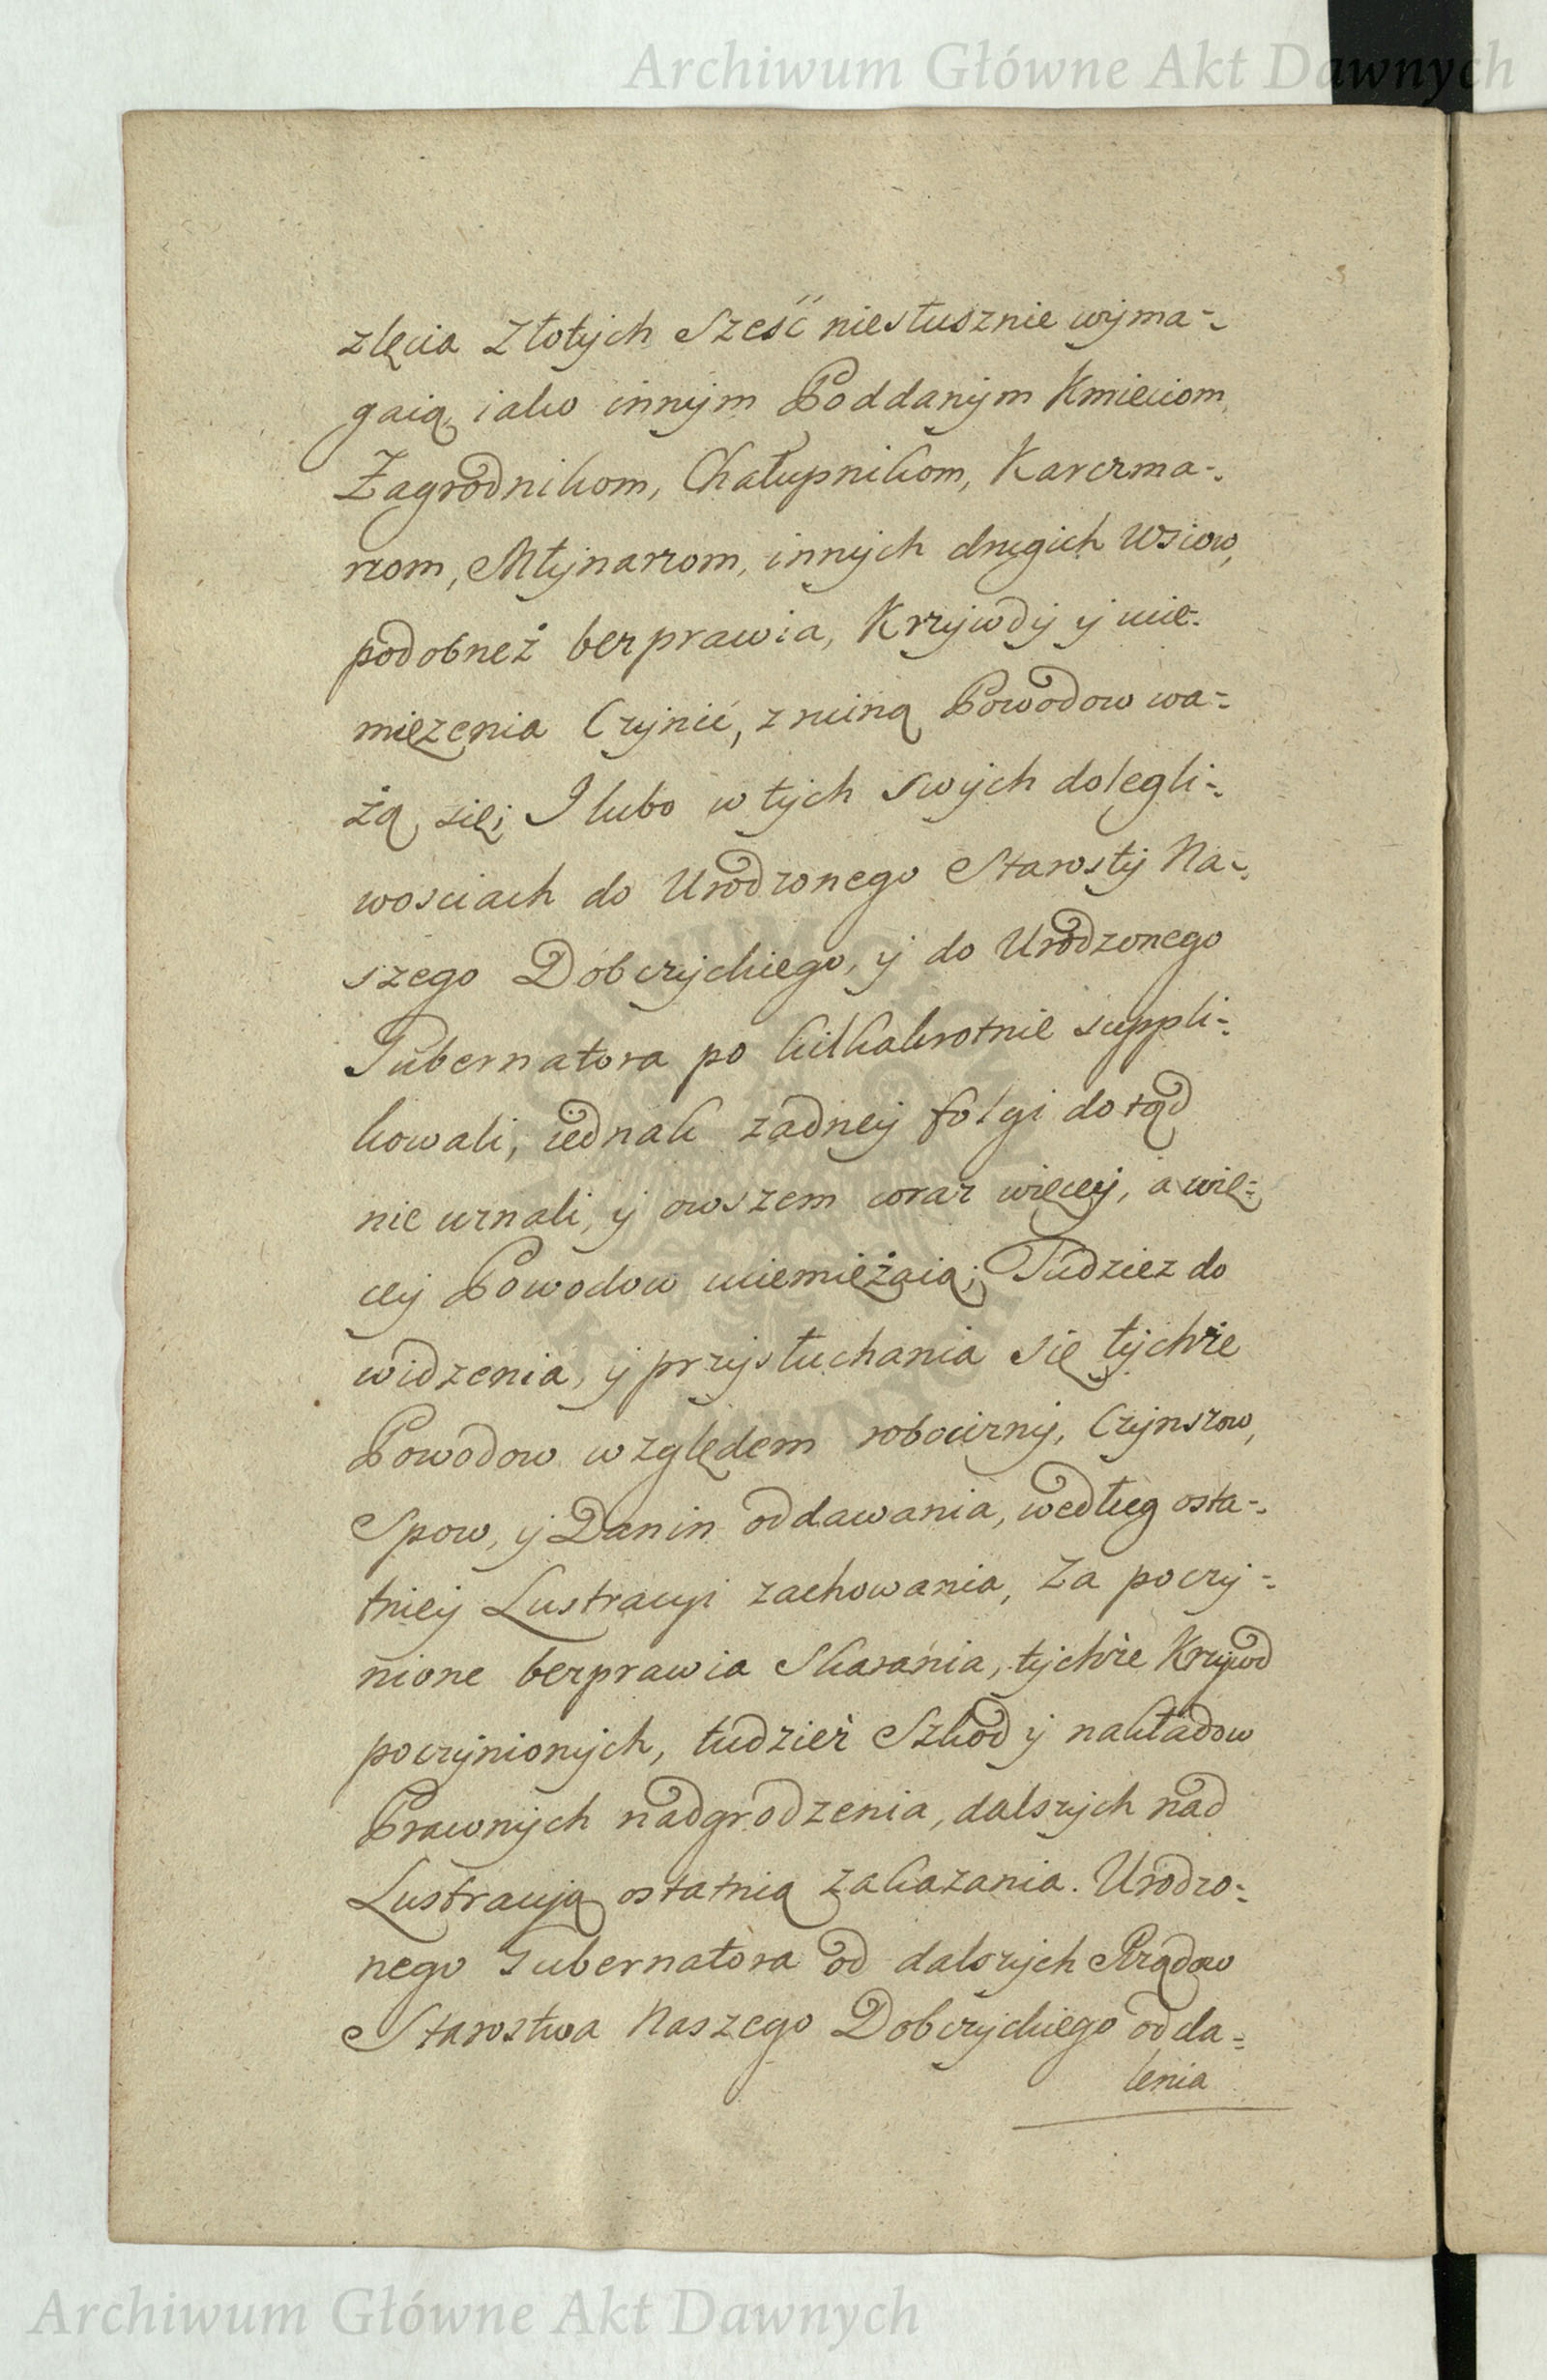 Archiwum Główne Akt Dawnych
zlęcia Złotych Szesć niesłusznie wyma-
gaią, iako innym Poddanym Kmieciom
Zagrodnikom, Chałupnikom, Karczma-
rzom, Młynarzom, innych drugich Wsiow,
podobneż bezprawia, Krzywdy y ucie-
mięzenia Czynić, z ruiną Powodow wa-
żą się; I lubo w tych swych dolegli-
wosciach do Urodzonego Starosty Na-
szego Dobczyckiego, y do Urodzonego
Gubernatora po kilkakrotnie suppli-
kowali, iednak zadney folgi dotąd
nie uznali, y owszem coraz więcey, a wię-
cey Powodow uciemiężaią; Tudziez do
widzenia, y przysłuchania się tychże
Powodow względem robocizny, Czynszow,
Spow, y Danin oddawania, według osta-
tniey Lustracyi zachowania, Za poczy-
nione bezprawia Skarania, tychże Krzywd
poczynionych, tudzież Szkod y nakładow
Prawnych nadgrodzenia, dalszych nad
Lustracyą ostatnią zakazania. Urodzo-
nego Gubernatora od dalszych Rządow
Starostwa Naszego Dobczyckiego odda-
lenia
Archiwum Główne Akt Dawnych